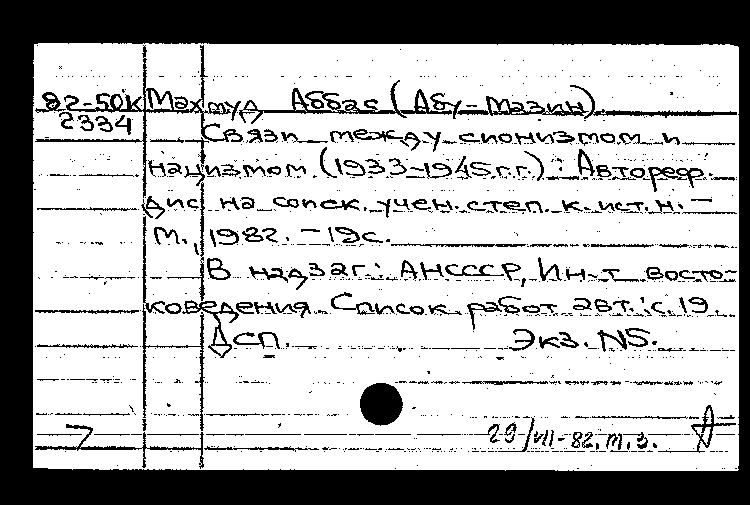 82-50К Махмуд Аббас (Абу-Мазин).
2334 Связи между сионизмом и
нацизмом (1933-1945г.г.) : Автореф.
дис на соиск. учен. степ. к. ист. н. –
М., 1982. – 19с.
В надзаг.: АНСССР, Ин-т восто-
коведения. Список работ авт.: с. 19.
ДСП. Экз. N5.
29/VII-82. т. з.